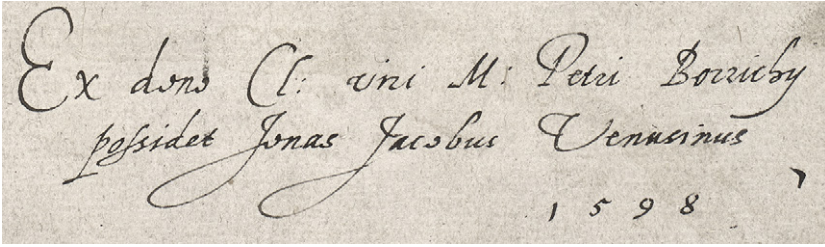 Ex dono Cl: viri M: Petri Borrichy
possidet Jonas Jacobus Venusinus
1598